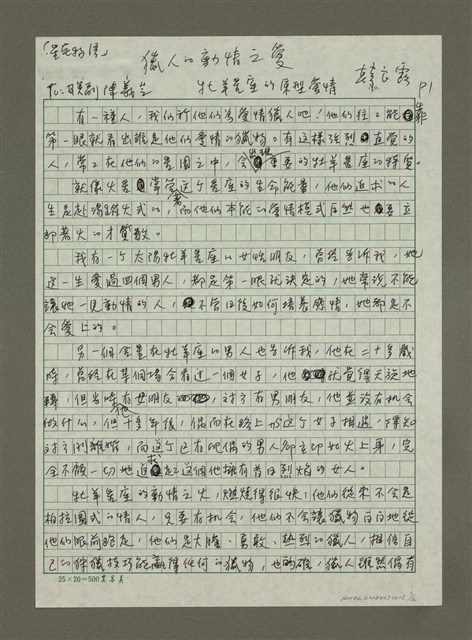 「星座物語」
獵人的動情之愛
牡羊星座的原型愛情
韓良露
P1
有一種人，我們稱他們為愛情獵人吧！他們往往能靠
第一眼就看出誰是他們愛情的獵物。有這樣強烈直覺的
人，常常在他們的星圖之中，會出現重要的牡羊星座的特質
就像火星掌管著這個星座的生命能量，他們追求的人
生是赴湯蹈火式的，而他們本能的愛情模式自然也要立
即著火的才算數。
我有一個太陽牡羊星座的女性朋友，曾經告訴我，她
這一生愛過四個男人，都是第一眼就決定的，她常說不能
讓她一見動情的人，不管日後如何培養感情，她都是不
會愛上的。
另一個金星在牡羊星座的男人也告訴我，他在二十多歲
時，曾經在某個場合看過一個女子，他就覺得天旋地
轉，但當時他有女朋友，對方有男朋友，他並沒有機會
做什麼，但十多年後，偶而在路上和這個女子相遇，得知
對方剛離婚，而這個已有配偶的男人卻立即如火上身，完
全不顧一切地追求起這個他擁有昔日烈焰的女人。
牡羊星座的動情之火，燃燒得很快，他們從來不會是
柏拉圖式的情人，只要有機會，他們不會讓獵物白白地從
他們眼前跑走，他們是大膽、勇敢、熱烈的獵人，相信自
己的狩獵技巧能贏得任何的獵物，也的確，獵人雖然偶有
25×20=500